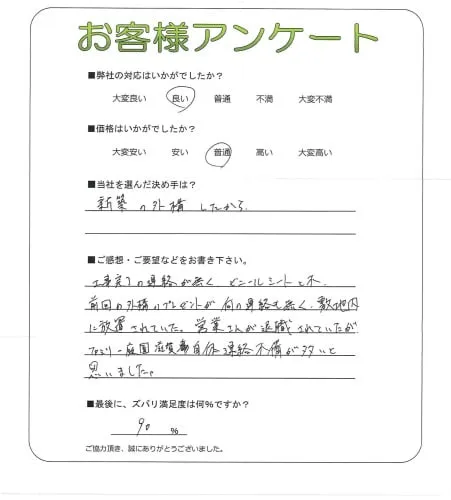 お客様アンケート
■弊社の対応はいかがでしたか?
大変良い 良い 普通 不満 大変不満
■価格はいかがでしたか?
大変安い 安い 普通 高い 大変高い
■当社を選んだ決め手は?
新築の外構したから
■ご感想・ご要望などをお書き下さい。
工事完了の連絡が無く、ビニールシートと木、
前回の外構のプレゼントが何の連絡も無く、敷地内
に放置されていた。営業さんが退職されていたが
ファミリー庭園滋賀 自体連絡不備が多いと
思いました。
■最後に、ズバリ満足度は何%ですか?
90 %
ご協力頂き、誠にありがとうございました。